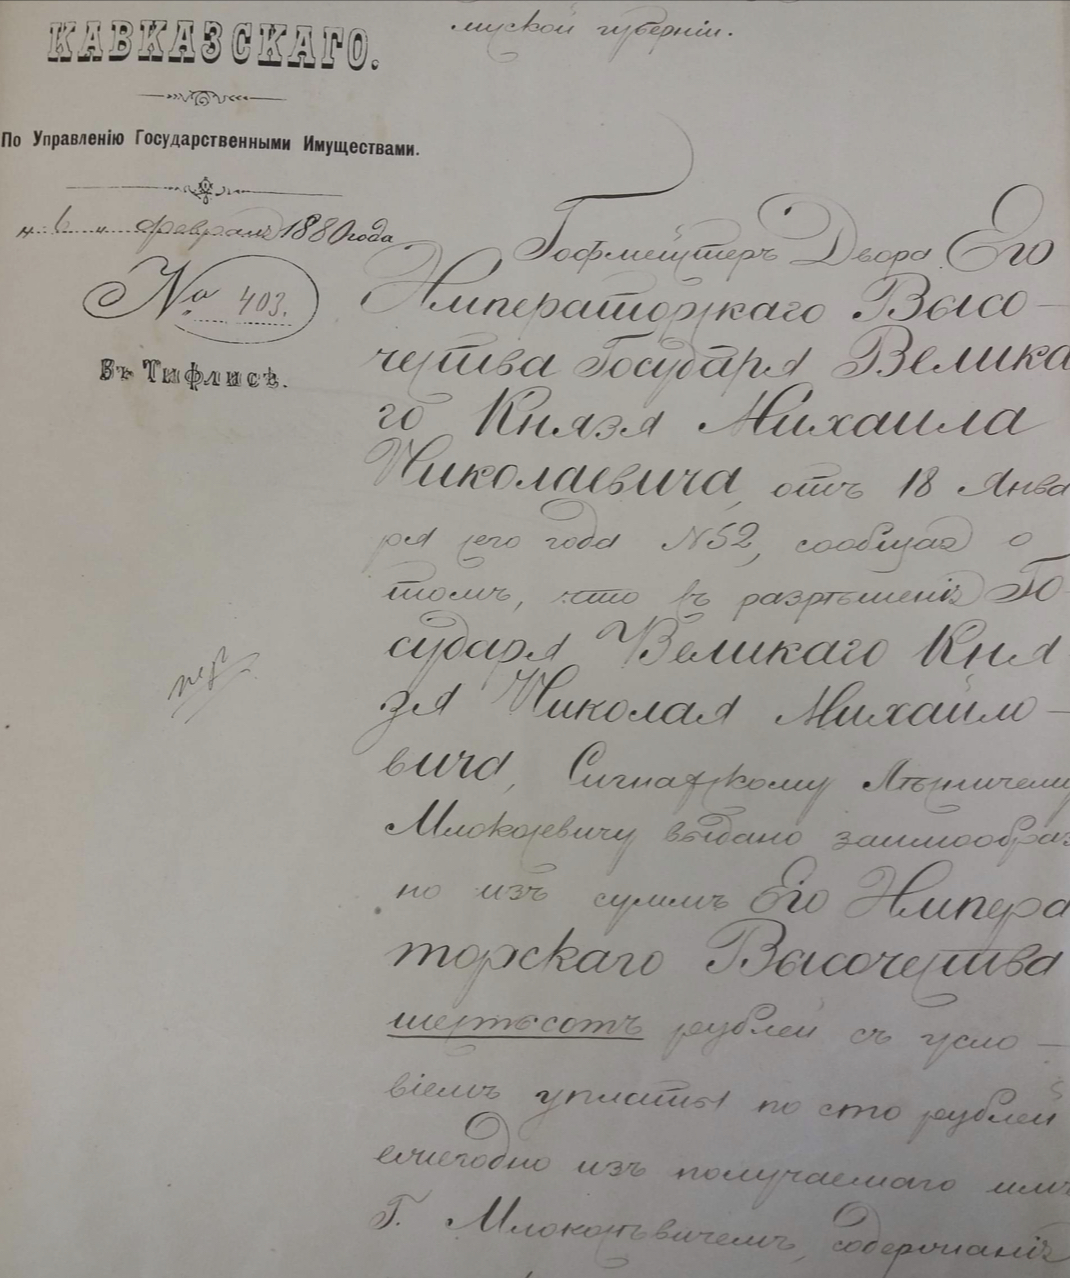 КАВКАЗСКАГО.
По Управленію Государственными Имуществами.
„6" февраля 1880 года
№ 403.
Въ Тифлисѣ.
лисской губерніи.
Гофмейстеръ Двора Его
Императорскаго Высо-
чества Государя Велика
го Князя Михаила
Николаевича, отъ 18 Янва
ря сего года №52, сообщая о
томъ, что съ разрѣшенія Го
сударя Великаго Кня
зя Николая Михайло-
вича, Сигнахскому Лѣсничему
Млокосевичу выдано заимообраз
но изъ суммъ Его Импера
торскаго Высочества
шестьсотъ рублей съ усло-
віемъ уплаты по сто рублей
ежегодно изъ получаемаго имъ
Г. Млокосѣвичемъ, содержанія